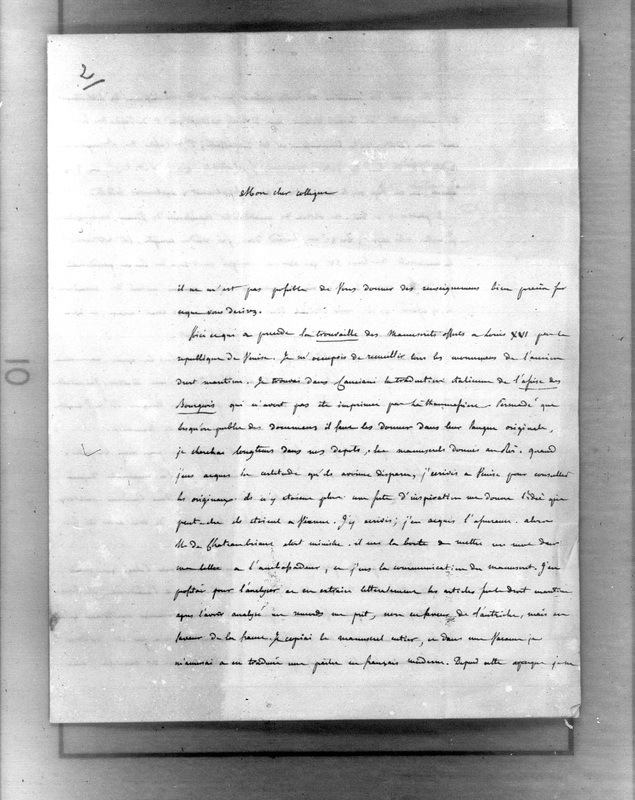 2/
Mon cher collegue
il ne m'est pas possible de vous donner des renseignemens bien precis sur
ce que vous desirez.
Voici ce qui a precede la trouvaille des manuscrits offerts a Louis XVI par la
republique de Venise. Je m'occupois de recueillir tous les monumens de l'ancien
droit maritime. Je trouvai dans Canciani la traduction italienne de l'assise des
Bourgeois qui n'avoit pas ete imprimée par la Thaumassiere. Persuadé que
lorsqu'on publie des documens il faut les donner dans leur langue originale,
je cherchai longtems dans nos depots, les manuscrits donnés au Roi. quand
j'eus acquis la certitude qu'ils avoient disparu, j'ecrivis a Venise pour consulter
les originaux. ils n'y etoient plus. une sorte d'inspiration me donna l'idée que
peut-etre ils etoient a Vienne. J'y ecrivis; j'en acquis l'assurance. alors
M. de Chateaubriand etoit ministre. il eut la bonté de mettre un mot dans
ma lettre a l'ambassadeur, et j'eus la communication du manuscrit. J'en
profitai pour l'analyser et en extraire litteralement les articles sur le droit maritime
apres l'avoir analysé un me prit, non en faveur de l'autriche, mais en
faveur de la france. Je copiai le manuscrit entier, et dans une
m'amusai a en traduire une partie en français moderne. Depuis cette epoque je
10